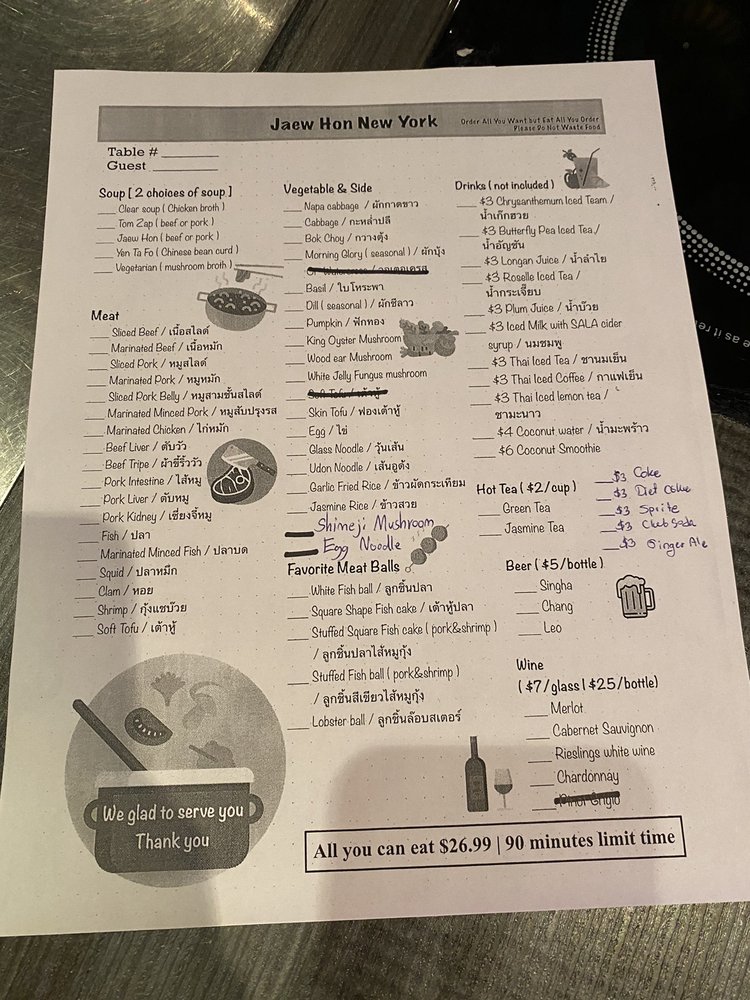 Jaew Hon New York
Order All You Want but Eat All You Order
Please Do Not Waste Food
Table # ________
Guest ________
Soup [ 2 choices of soup ]
___ Clear soup ( Chicken broth )
___ Tom Zap ( beef or pork )
___ Jaew Hon ( beef or pork )
___ Yen Ta Fo ( Chinese bean curd )
___ Vegetarian ( mushroom broth )
Meat
___ Sliced Beef / เนื้อสไลด์
___ Marinated Beef / เนื้อหมัก
___ Sliced Pork / หมูสไลด์
___ Marinated Pork / หมูหมัก
___ Sliced Pork Belly / หมูสามชั้นสไลด์
___ Marinated Minced Pork / หมูสับปรุงรส
___ Marinated Chicken / ไก่หมัก
___ Beef Liver / ตับวัว
___ Beef Tripe / ผ้าขี้ริ้ววัว
___ Pork Intestine / ไส้หมู
___ Pork Liver / ตับหมู
___ Pork Kidney / เซี่ยงจี้หมู
___ Fish / ปลา
___ Marinated Minced Fish / ปลาบด
___ Squid / ปลาหมึก
___ Clam / หอย
___ Shrimp / กุ้งแชบ๊วย
___ Soft Tofu / เต้าหู้
We glad to serve you
Thank you
Vegetable & Side
___ Napa cabbage / ผักกาดขาว
___ Cabbage / กะหล่ำปลี
___ Bok Choy / กวางตุ้ง
___ Morning Glory ( seasonal ) / ผักบุ้ง
Watercress / วอเตอเครส
___ Basil / ใบโหระพา
___ Dill ( seasonal ) / ผักชีลาว
___ Pumpkin / ฟักทอง
___ King Oyster Mushroom
___ Wood ear Mushroom
___ White Jelly Fungus mushroom
___ Soft Tofu / เต้าหู้
___ Skin Tofu / ฟองเต้าหู้
___ Egg / ไข่
___ Glass Noodle / วุ้นเส้น
___ Udon Noodle / เส้นอูด้ง
___ Garlic Fried Rice / ข้าวผัดกระเทียม
___ Jasmine Rice / ข้าวสวย
___ Shimeji Mushroom
___ Egg Noodle
Favorite Meat Balls
___ White Fish ball / ลูกชิ้นปลา
___ Square Shape Fish cake / เต้าหู้ปลา
___ Stuffed Square Fish cake ( pork&shrimp )
/ ลูกชิ้นปลาไส้หมูกุ้ง
___ Stuffed Fish ball ( pork&shrimp )
/ ลูกชิ้นสีเขียวไส้หมูกุ้ง
___ Lobster ball / ลูกชิ้นล๊อบสเตอร์
Drinks ( not included )
___ $3 Chrysanthemum Iced Team /
น้ำเก๊กฮวย
___ $3 Butterfly Pea Iced Tea /
น้ำอัญชัน
___ $3 Longan Juice / น้ำลำไย
___ $3 Roselle Iced Tea /
น้ำกระเจี๊ยบ
___ $3 Plum Juice / น้ำบ๊วย
___ $3 Iced Milk with SALA cider
syrup / นมชมพู
___ $3 Thai Iced Tea / ชานมเย็น
___ $3 Thai Iced Coffee / กาแฟเย็น
___ $3 Thai Iced lemon tea /
ชามะนาว
___ $4 Coconut water / น้ำมะพร้าว
___ $6 Coconut Smoothie
Hot Tea ( $2/cup )
___ Green Tea
___ Jasmine Tea
___ $3 Coke
___ $3 Diet Coke
___ $3 Sprite
___ $3 Club Soda
___ $3 Ginger Ale
Beer ( $5/bottle )
___ Singha
___ Chang
___ Leo
Wine
( $7/glass | $25/bottle)
___ Merlot
___ Cabernet Sauvignon
___ Rieslings white wine
___ Chardonnay
___ Pinot Grigio
All you can eat $26.99 | 90 minutes limit time